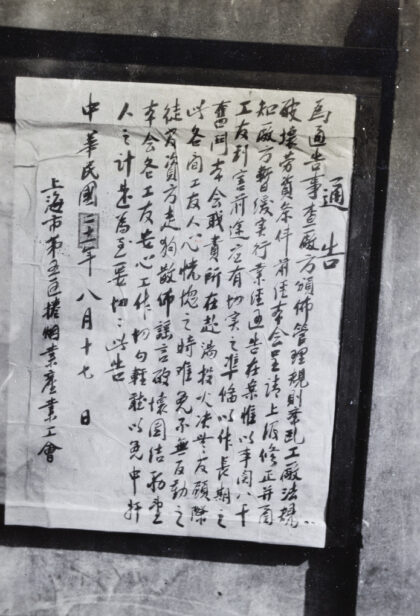 通告
為通告事查廠方頒佈管理規則紊亂工廠法規
破壞勞資條件前經本會呈請上級修正并函
知廠方暫緩實行業經通告在案惟以事關八十
工友利害前途應有切实之準備以作長期之
奮鬥本會職責所在赴湯投火决無反顧際
此各間工友人心恍惚之時难免不無反動之
徒及資方走狗散佈謠言破壞團结勸望
本會各工友安心工作切勿輕聽以免中奸
人之計是為至要切切此告
中華民國二十一年八月十七日
上海市第五區捲烟業產業工會